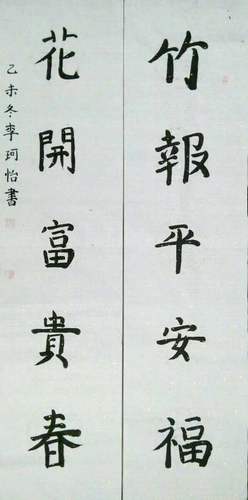 竹報平安福
花開富貴春
乙未冬李珂怡書